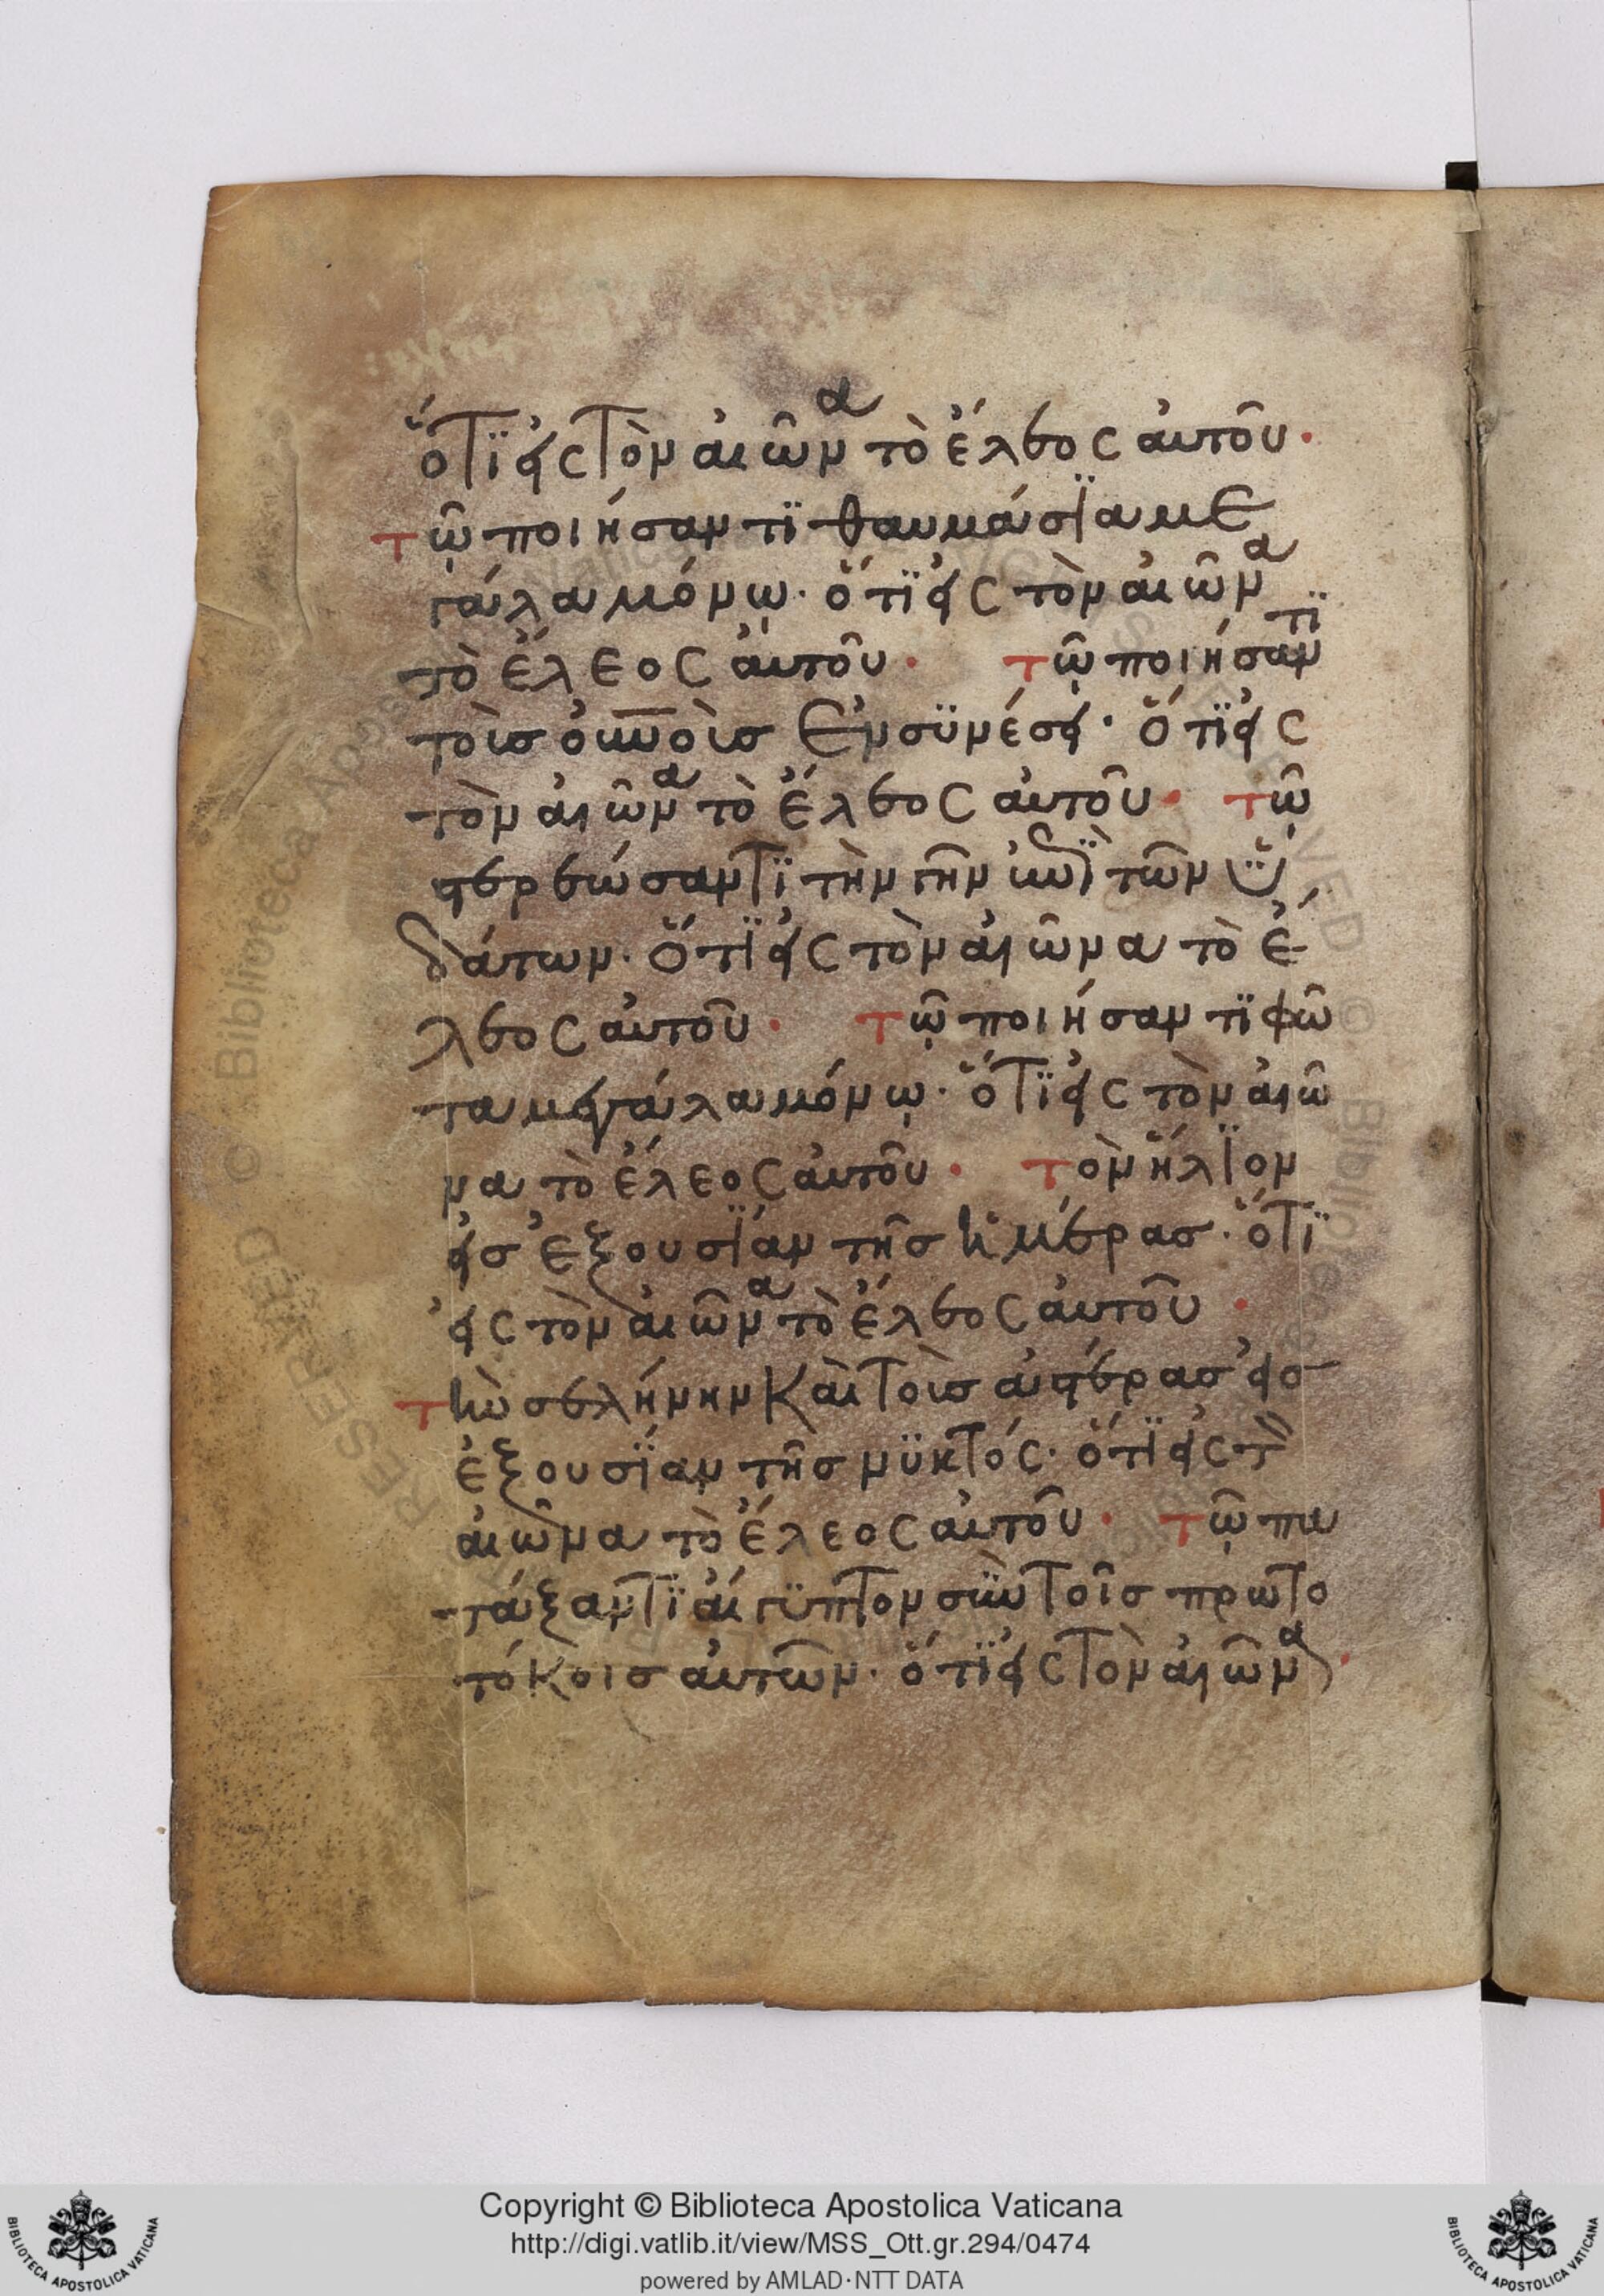 ὅτϊ εἰς τὸν αἰῶνα τὸ ἔλεος αὐτοῦ·
τῶ ποιήσαντϊ θαυμάσϊα με
γάλα μόνω· ὅτϊ εἰς τὸν αἰῶνα
τὸ ἔλεος αὐτοῦ· τῶ ποιήσαντϊ
τοὺσ οὐνοὺσ ἐν συνέσει· ὅτϊ εἰς
τὸν αἰῶνα τὸ ἔλεος αὐτοῦ· τῶ
στερεώσαντϊ τὴν γῆν ἐπϊ τῶν ϋ
δάτων· ὅτϊ εἰς τὸν αἰῶνα τὸ ἔ
λεος αὐτοῦ· τῶ ποιήσαντϊ φῶ
τα μεγάλα μόνω· ὅτϊ εἰς τὸν αἰῶ
να τὸ ἔλεος αὐτοῦ· τὸν ἥλϊον
εἰσ ἐξουσϊάν τῆσ ἡμέρασ· ὅτϊ
εἰς τὸν αἰῶνα τὸ ἔλεος αὐτοῦ·
τὴν σελήνην καὶ τοὺσ ἀστέρασ εἰσ
ἐξουσϊάν τῆσ νϋκτός· ὅτϊ εἰς τὸν
αἰῶνα τὸ ἔλεος αὐτοῦ· τῶ πα
τάξαντϊ αἴγϋπτον σὺν τοῖσ πρωτο
τόκοισ αὐτῶν· ὅτϊ εἰς τὸν αἰῶνα·
Copyright © Biblioteca Apostolica Vaticana
http://digi.vatlib.it/view/MSS_Ott.gr.294/0474
powered by AMLAD·NTT DATA
BIBLIOTECA APOSTOLICA VATICANA
BIBLIOTECA APOSTOLICA VATICANA